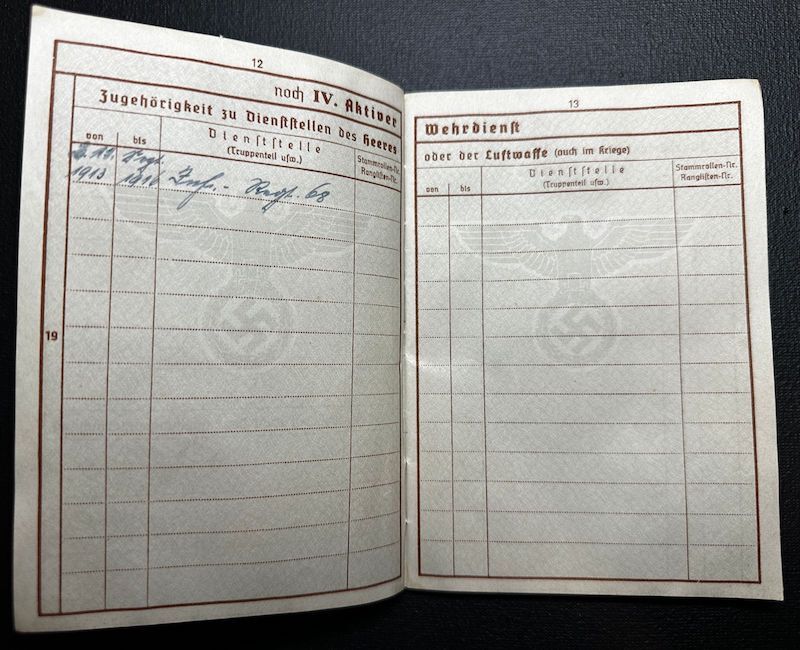 12
noch IV. Aktiver
Zugehörigkeit zu Dienststellen des Heeres
von bis Dienststelle (Truppenteil usw.) Stammrollen-Nr. Ranglisten-Nr.
1913 1916 Inf.- Regt. 68
19
13
Wehrdienst
oder der Luftwaffe (auch im Kriege)
von bis Dienststelle (Truppenteil usw.) Stammrollen-Nr. Ranglisten-Nr.